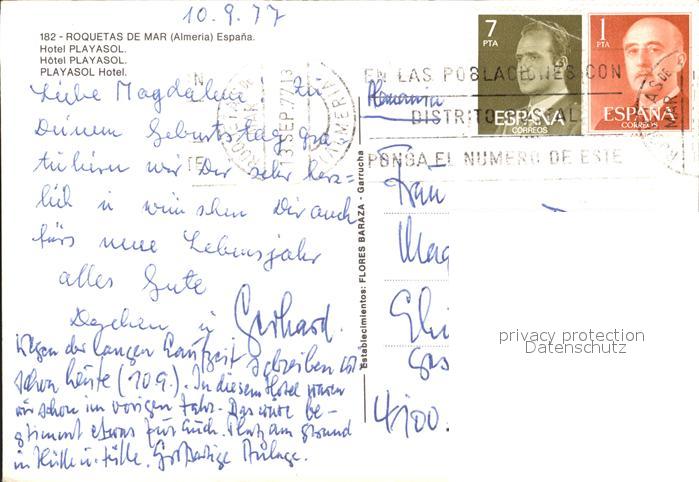 10.9.77
182 - ROQUETAS DE MAR (Almeria) España.
Hotel PLAYASOL.
Hôtel PLAYASOL.
PLAYASOL Hotel.
7
PTA
ESPAÑA
CORREOS
1
PTA
ESPAÑA
CORREOS
EN LAS POBLACIONES CON
DISTRITO POSTAL
PONGA EL NUMERO DE ESTE
13 SEP. 77
ALMERIA
Liebe Magdalena! Zu
Deinem Geburtstag gra
tulieren wir Dir sehr herz=
lich u wünschen Dir auch
fürs neue Lebensjahr
alles Gute
u Gerhard.
Wegen der langen Laufzeit schreiben wir
schon heute (10.9.). In diesem Hotel waren
wir schon im vorigen Jahr. Das wäre be-
stimmt etwas für Euch. Platz am Strand
in Hülle u. Fülle. Großartige Anlage.
Establecimientos: FLORES BARAZA - Garrucha
Frau
Mag
4100.
privacy protection
Datenschutz